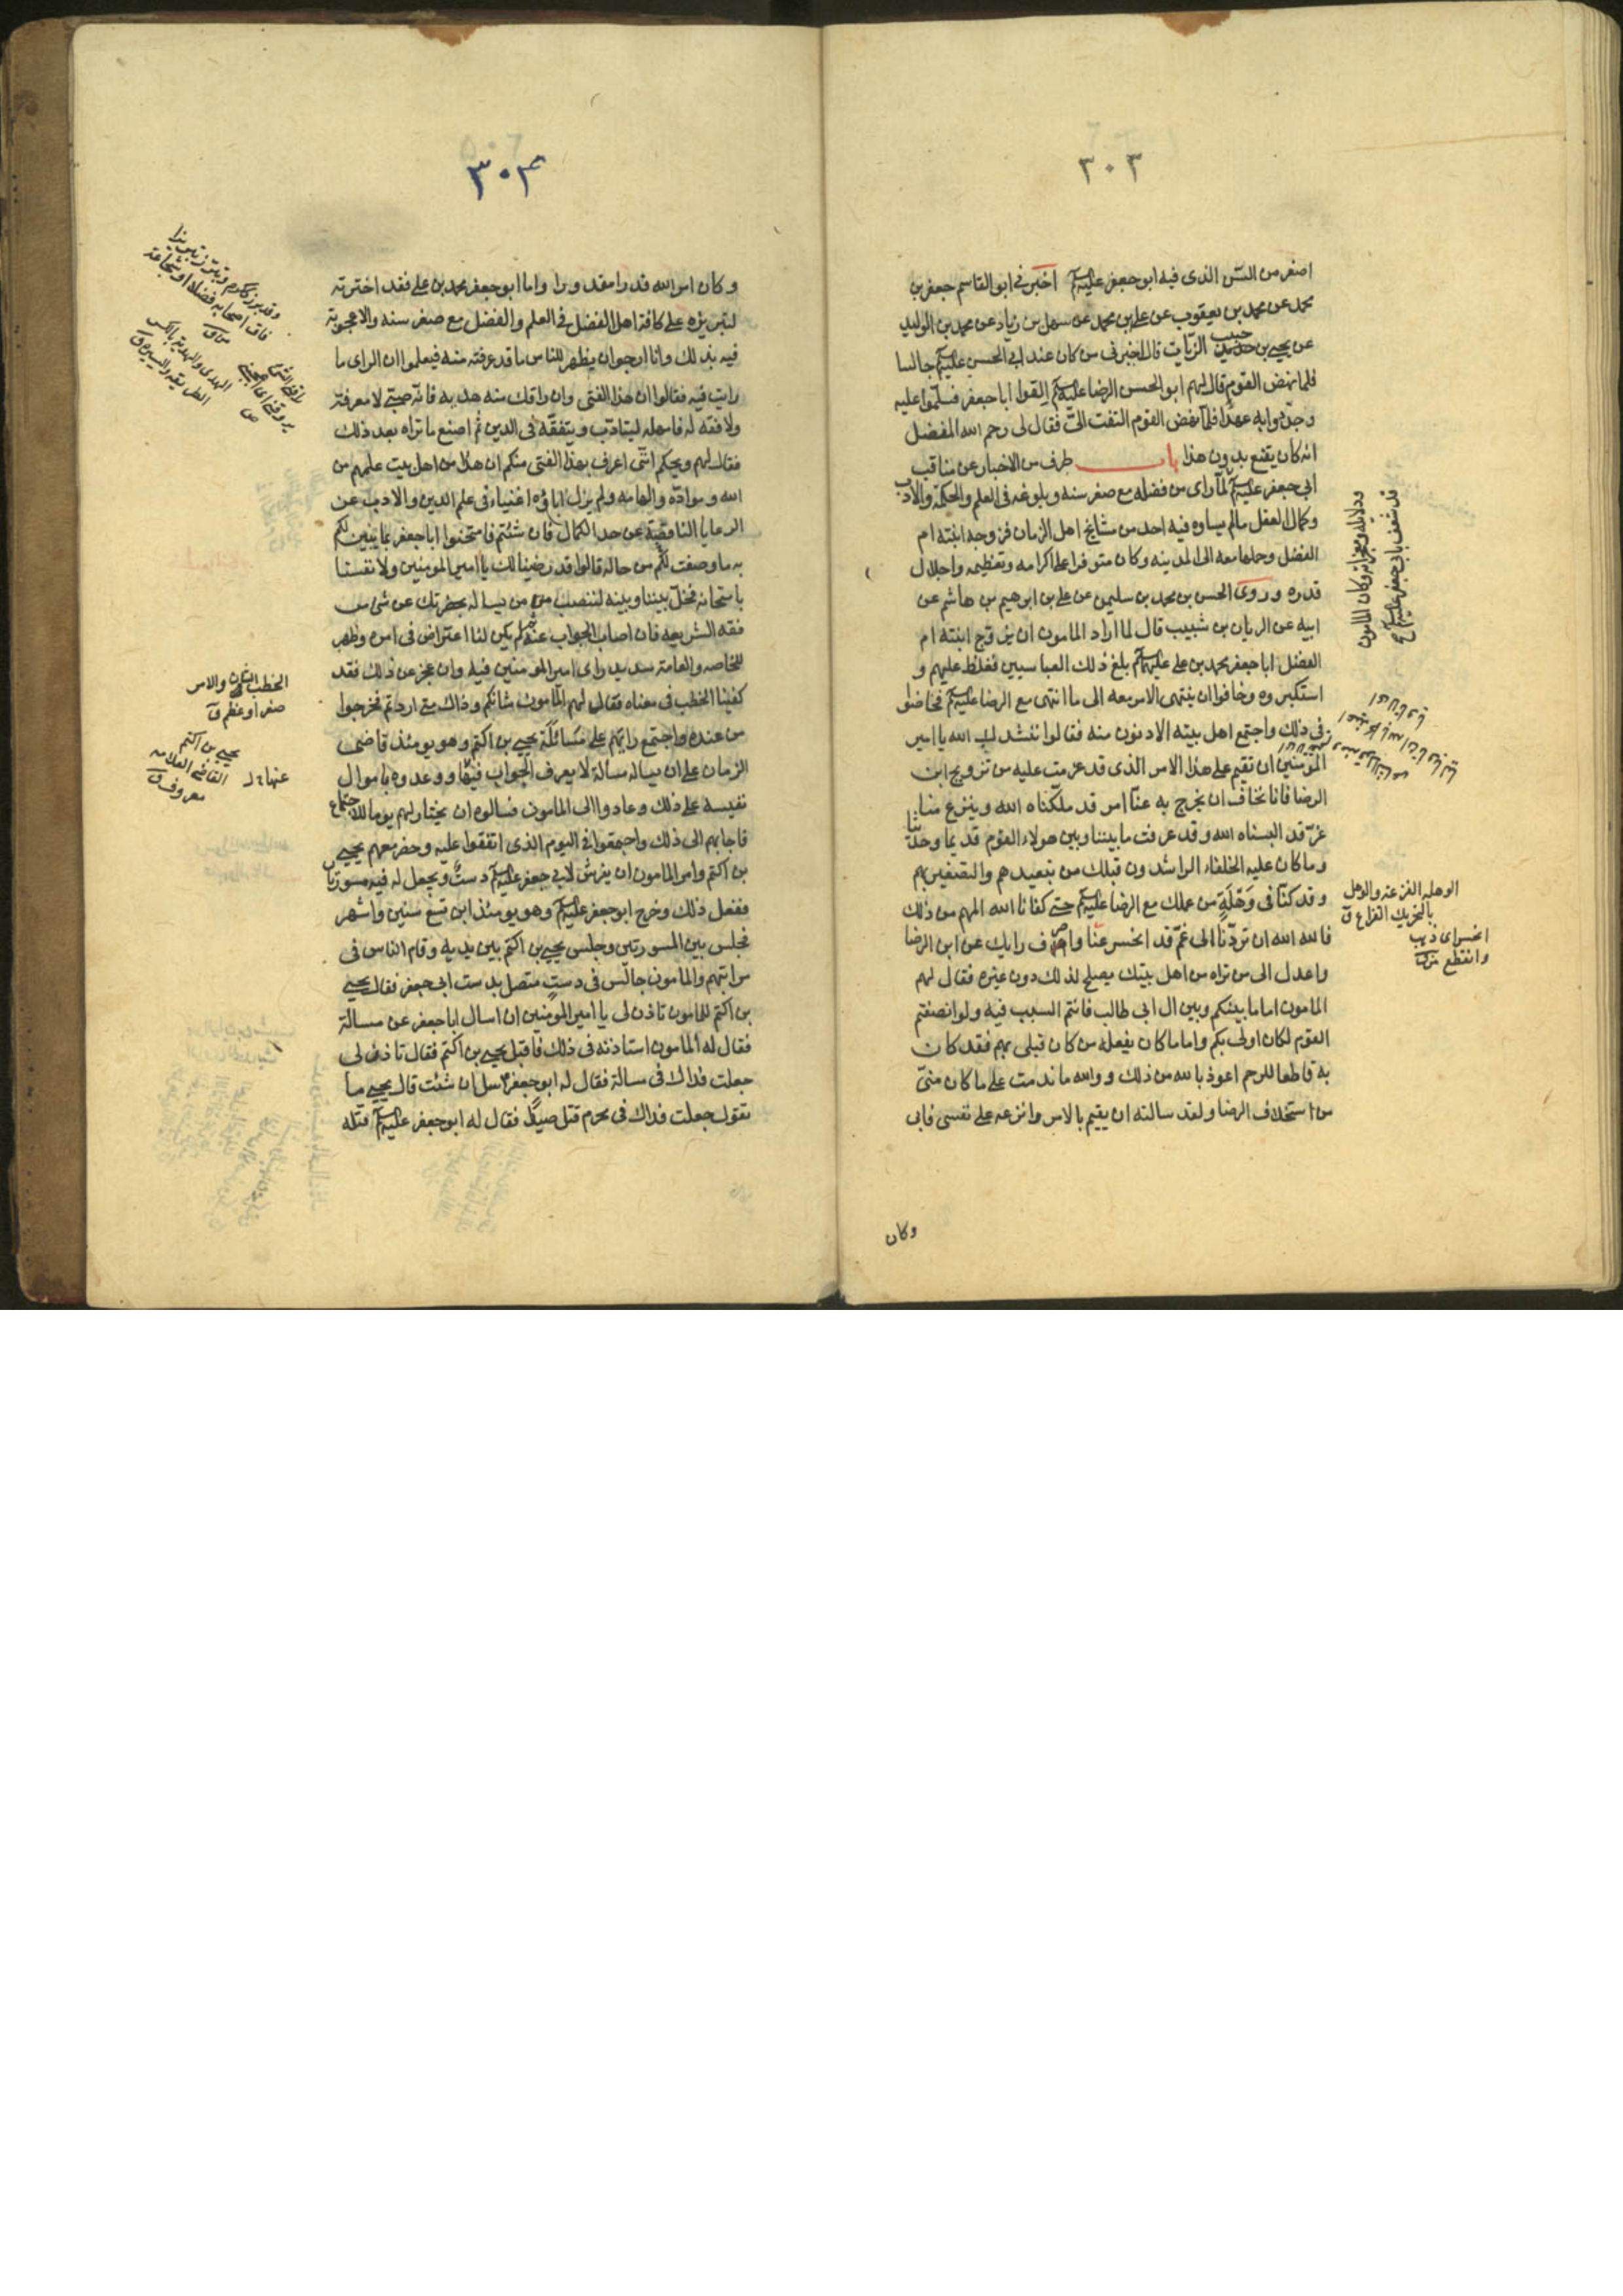 ٣٠٣
اصغر من السن الذى فيه ابو جعفر عليه السلم اخبرنى ابو القاسم جعفر بن
محمد عن محمد بن يعقوب عن على بن محمد عن سهل بن زياد عن محمد بن الوليد
عن يحيى بن حبيب الزيات قال اخبرنى من كان عند ابى الحسن عليه السلم جالسا
فلما نهض القوم قال لهم ابو الحسن الرضا عليه السلم القوا ابا جعفر فسلموا عليه
وجددوا به عهدا فلما نهض القوم التفت الىّ فقال لى رحم الله المفضل
انه كان يقنع بدون هذا باب طرف من الاخبار عن مناقب
ابى جعفر عليه السلم لما راى من فضله مع صغر سنه وبلوغه فى العلم والحكمة والادب
وكمال العقل مالم يساوه فيه احد من مشايخ اهل الزمان فزوجه ابنته ام
الفضل وحملها معه الى المدينه وكان متوفرا على اكرامه وتعظيمه واجلال
قدره وروى الحسن بن محمد بن سليمن عن على بن ابرهيم بن هاشم عن
ابيه عن الريان بن شبيب قال لما اراد المامون ان يزوج ابنته ام
الفضل ابا جعفر محمد بن على عليهما السلم بلغ ذلك العباسيين فغلظ عليهم و
استكبروه وخافوا ان ينتهى الامر معه الى ما انتهى مع الرضا عليه السلم فخاضوا
فى ذلك واجتمع اهل بيته الادنون منه فقالوا ننشدك الله يا امير
المؤمنين ان تقيم على هذا الامر الذى قد عزمت عليه من تزويج ابن
الرضا فانا نخاف ان يخرج به عنا امر قد ملكناه الله وينزع منا
عزّ قد البسناه الله وقد عرفت ما بيننا وبين هولاء القوم قديما وحديثا
وما كان عليه الخلفاء الراشدون قبلك من تبعيدهم والتصغير بهم
وقد كنا فى وهلة من عملك مع الرضا عليه السلم حتى كفانا الله المهم من ذلك
فالله الله ان تردنا الى غم قد انحسر عنا واصرف رايك عن ابن الرضا
واعدل الى من تراه من اهل بيتك يصلح لذلك دون غيره فقال لهم
المامون اما ما بينكم وبين ال ابى طالب فانتم السبب فيه ولو انصفتم
القوم لكان اولى بكم واما ما كان يفعله من كان قبلى بهم فقد كان
به قاطعا للرحم اعوذ بالله من ذلك ووالله ما ندمت على ما كان منىّ
من استخلاف الرضا ولقد سالته ان يقيم بالامر وانزعه على نفسى فابى
وكان
ودلايله ومعجزاته وكان المامون
قد شغف بابى جعفر عليه السلم
الوهله الفزعه والوهل
بالتحريك الفزع ق
انحسر اى ذهب
وانقطع
٣٠۴
وكان امر الله قدرا مقدورا واما ابو جعفر محمد بن على فقد اخترته
لتبريزه على كافة اهل الفضل فى العلم والفضل مع صغر سنه والاعجوبة
فيه بذلك وانا ارجو ان يظهر للناس ما قد عرفته منه فيعلموا ان الراى ما
رايت فيه فقالوا ان هذا الفتى وان راقك منه هديه فانه صبى لا معرفة
ولا فقه له فامهله ليتادب ويتفقه فى الدين ثم اصنع ما تراه بعد ذلك
فقال لهم ويحكم انى اعرف بهذا الفتى منكم ان هذا من اهل بيت علمهم من
الله وموادّه والهامه ولم يزل اباؤه اغنياء فى علم الدين والادب عن
الرعايا الناقصة عن حد الكمال فان شئتم فامتحنوا ابا جعفر بما يتبين لكم
به ما وصفت لكم من حاله قالوا قد رضينا لك يا امير المومنين ولانفسنا
بامتحانه فخل بيننا وبينه لننصب من يساله بحضرتك عن شى من
فقه الشريعه فان اصاب الجواب عنه لم يكن لنا اعتراض فى امره وظهر
للخاصه والعامة سديد راى امير المومنين فيه وان عجز عن ذلك فقد
كفينا الخطب فى معناه فقال لهم المامون شانكم وذاك متى اردتم فخرجوا
من عنده واجتمع رايهم على مسائلة يحيى بن اكثم وهو يومئذ قاضى
الزمان على ان يساله مسالة لا يعرف الجواب فيها ووعدوه باموال
نفيسه على ذلك وعادوا الى المامون فسالوه ان يختار لهم يوما للاجتماع
فاجابهم الى ذلك واجتمعوا فى اليوم الذى اتفقوا عليه وحضر معهم يحيى
بن اكثم وامر المامون ان يفرش لابى جعفر عليه السلم دست ويجعل له فيه مسورتان
ففعل ذلك وخرج ابو جعفر عليه السلم وهو يومئذ ابن تسع سنين واشهر
فجلس بين المسورتين وجلس يحيى بن اكثم بين يديه وقام الناس فى
مراتبهم والمامون جالس فى دست متصل بدست ابى جعفر فقال يحيى
بن اكثم للمامون تاذن لى يا امير المومنين ان اسال ابا جعفر عن مسالة
فقال له المامون استاذنه فى ذلك فاقبل يحيى بن اكثم فقال تاذن لى
جعلت فداك فى مسالة فقال له ابو جعفر سل ان شئت قال يحيى ما
تقول جعلت فداك فى محرم قتل صيدا فقال له ابو جعفر عليه السلم قتله
الخطب الشان والامر
صغر او عظم ق
يحيى بن اكثم
القاضى العلامه
معروف ق